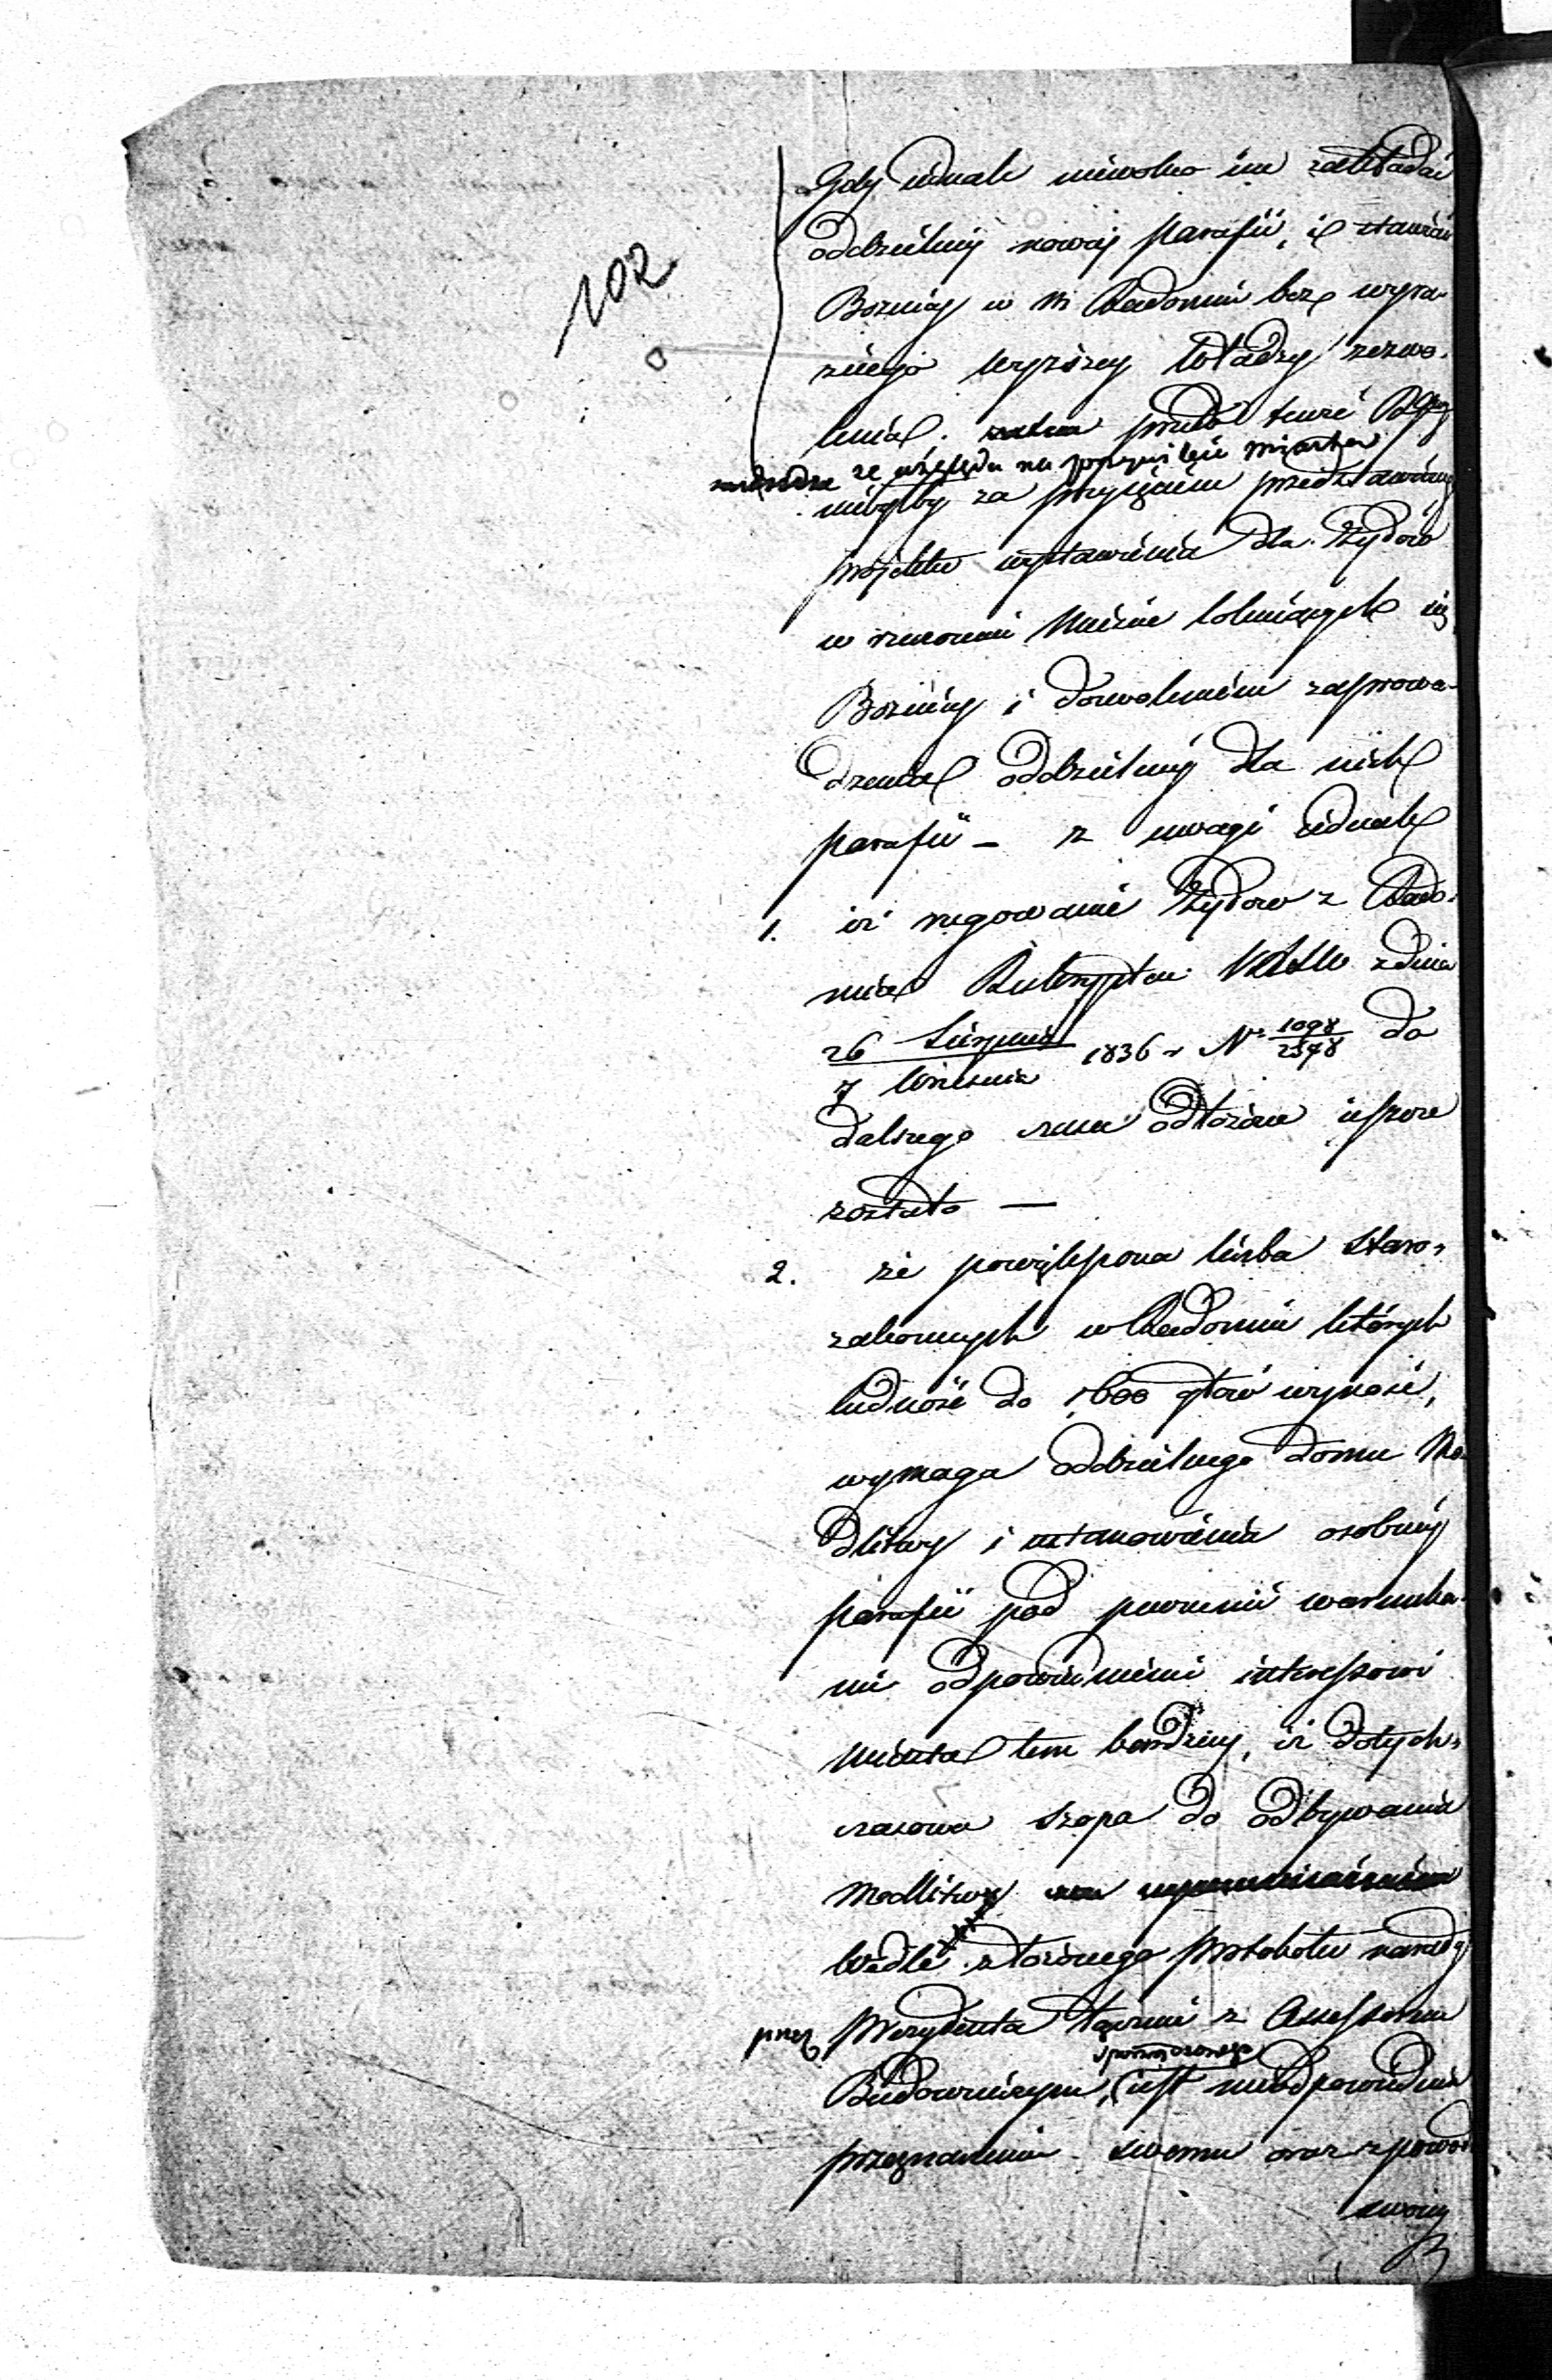 102
Gdy iednak niewolno im zakładać
oddzielney nowey parafii, i stawiać
Boznicy w m Radomiu bez wyra-
znego wyższey Władzy zezwo-
lenia. przeto
ze względu na miasta
nibyłby za przyięciem przedstawioney
projektu wystawienia dla Żydów
w rzeczonem Mieście lokuiących się
Boznicy i dozwoleniem zaprowa-
dzenia oddzielney dla nich
parafii – z uwagi iednak
1. iż rugowanie Żydow z Rado-
mia Reskryptem z dnia
26 Sierpnia / 7 Września 1836 r N° 1098/2548 do
dalszego czasu odłożone ieszcze
zostało —
2. że powiększona liczba Staro-
zakonnych w Radomiu których
ludność do 1600 głów wynosi,
wymaga oddzielnego domu Mo-
dlitwy i ustanowienia osobney
parafii pod pewnemi warunka-
mi odpowiedniemi interessowi
miasta tem bardziey, iż dotych-
czasowa szopa do odbywania
Modlitwy
Wedle złożonego protokołu narady
przez Prezydenta łącznie z Assessorem
Budowniczym, sporządzonego iest nieodpowiednia
przeznaczeniu swemu oraz z powodu
swoiey